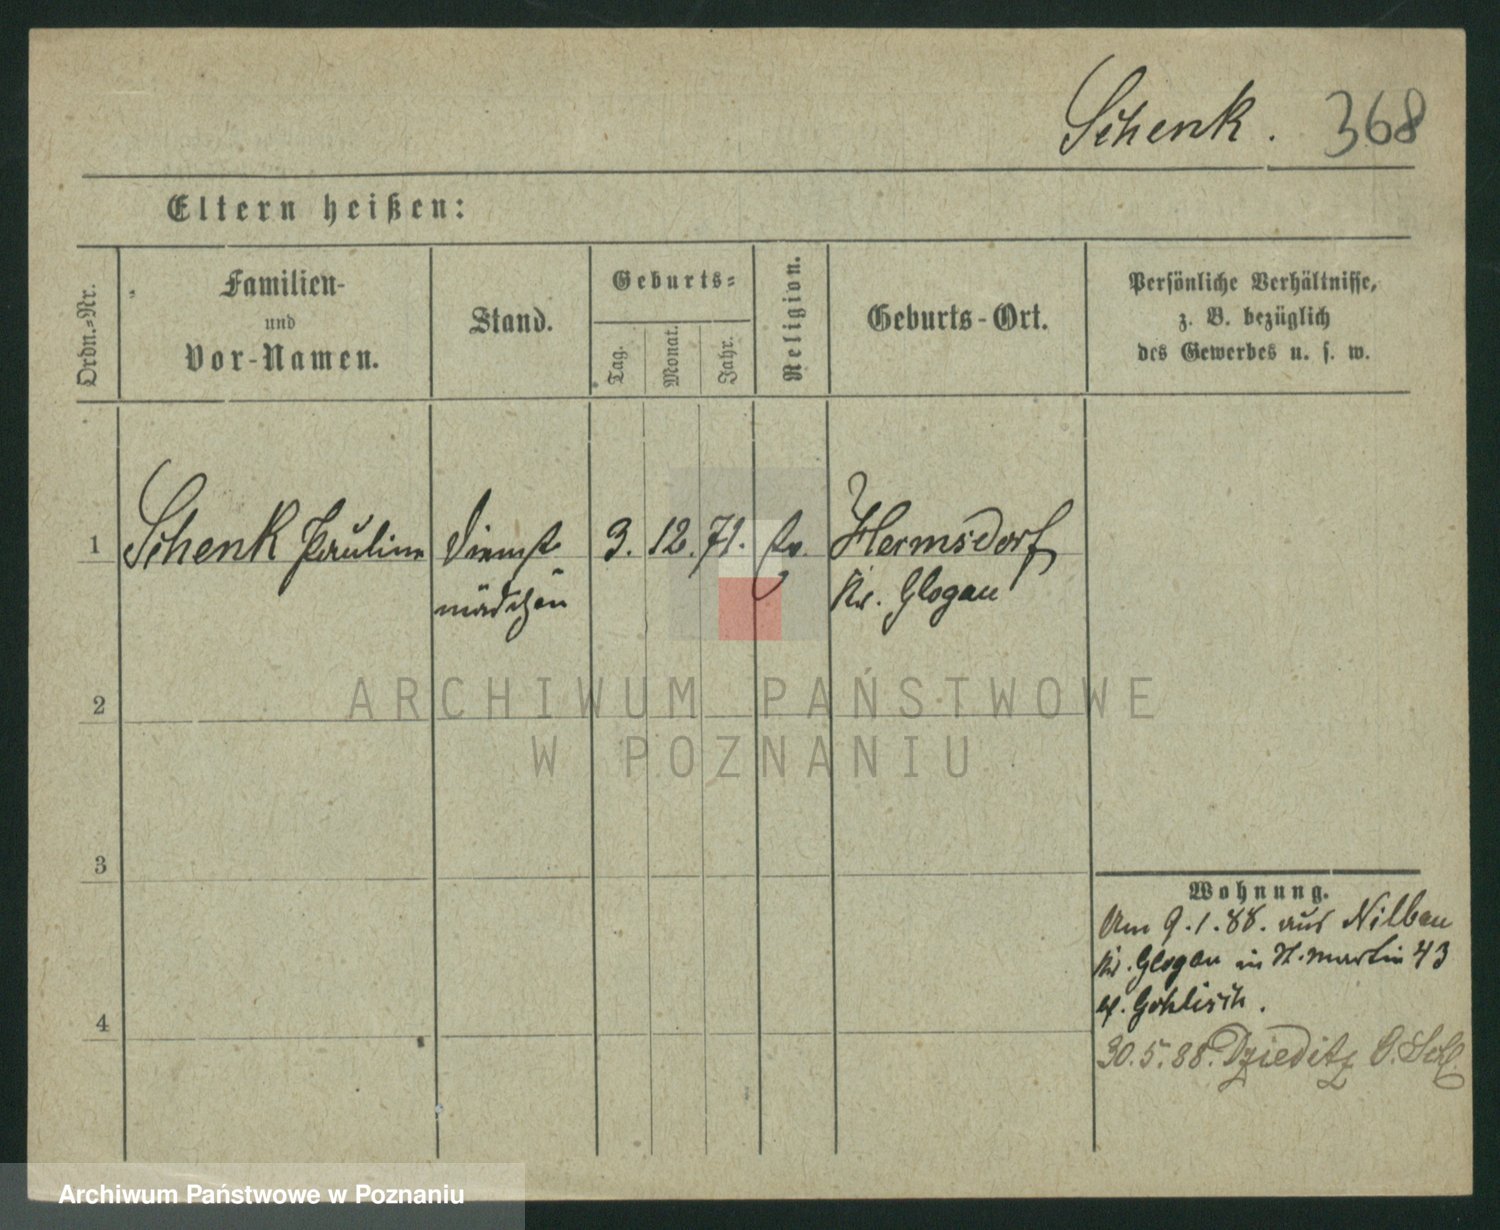 Schenk. 368
Eltern heißen:
Ordn.=Nr.
Familien-
und
Vor-Namen.
Stand.
Geburts=
Tag.
Monat.
Jahr.
Religion.
Geburts-Ort.
Persönliche Verhältnisse,
z. B. bezüglich
des Gewerbes u. s. w.
1 Schenk Pauline Dienst 3. 12. 71. Ev. Hermsdorf
mädchen Kr. Glogau
ARCHIWUM PAŃSTWOWE
W POZNANIU
2
3
Wohnung.
Am 9.1.88. aus Nilbau
Kr. Glogau in St. Martin 43
Gohlisch.
4
30.5.88. Dzieditz O. Schl.
Archiwum Państwowe w Poznaniu